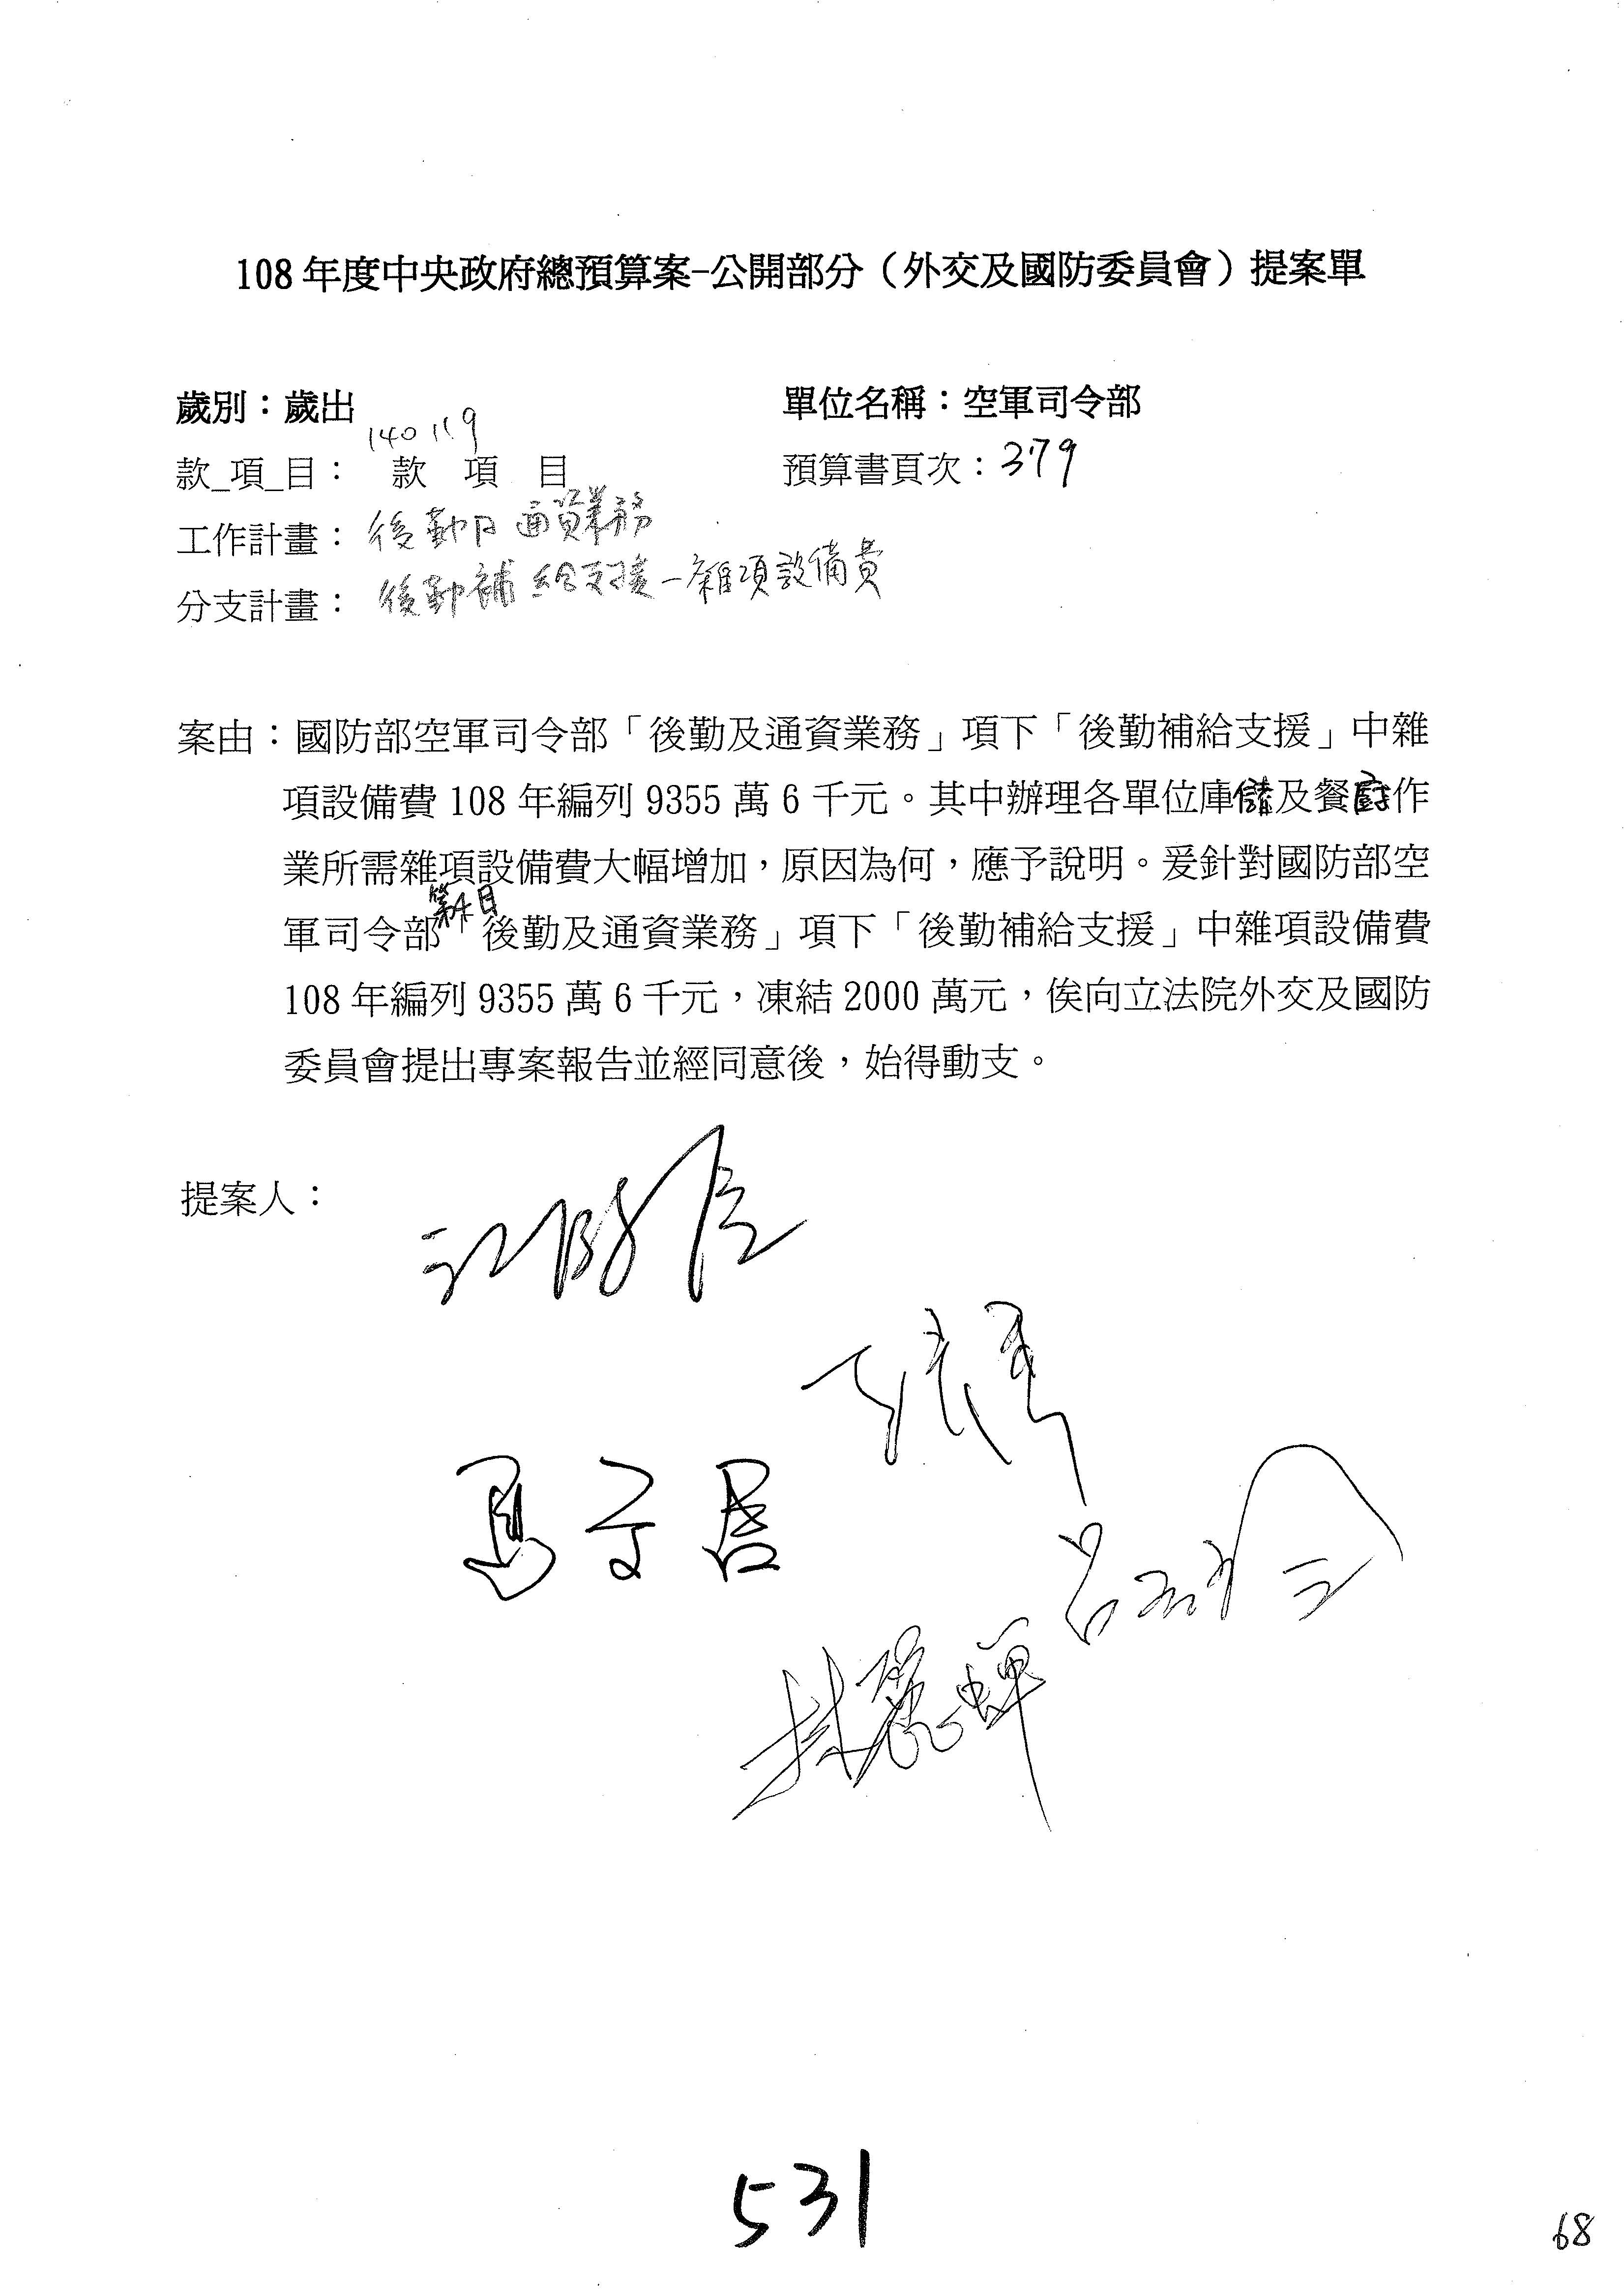 108年度中央政府總預算案-公開部分（外交及國防委員會）提案單
歲別：歲出
單位名稱：空軍司令部
款_項_目： 款 項 目
預算書頁次：379
工作計畫：後勤及通資業務
分支計畫：後勤補給支援-雜項設備費
案由：國防部空軍司令部「後勤及通資業務」項下「後勤補給支援」中雜
項設備費108年編列9355萬6千元。其中辦理各單位庫儲及餐廚作
業所需雜項設備費大幅增加，原因為何，應予說明。爰針對國防部空
第4目
軍司令部「後勤及通資業務」項下「後勤補給支援」中雜項設備費
108年編列9355萬6千元，凍結2000萬元，俟向立法院外交及國防
委員會提出專案報告並經同意後，始得動支。
提案人：
江啟臣
馬文君
呂玉玲
林麗蟬
531
68